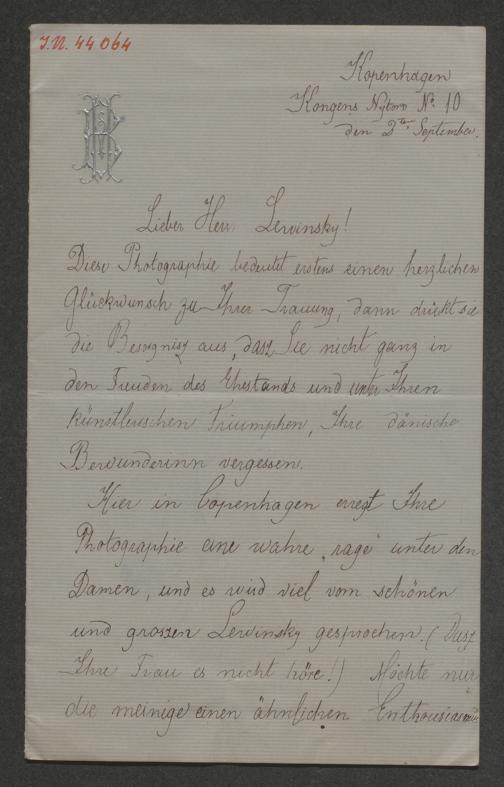 J.N. 44064
Kopenhagen
Kongens Nytorv No 10
den 2ten September.
Lieber Herr Lewinsky!
Diese Photographie bedeutet erstens einen herzlichen
Glückwunsch zu Ihrer Trauung, dann drückt sie
die Besorgnisz aus, dasz Sie nicht ganz in
den Freuden des Ehestands und unter Ihren
künstlerischen Triumphen, Ihre dänische
Bewunderinn vergessen.
Hier in Copenhagen erregt Ihre
Photographie eine wahre „rage" unter den
Damen, und es wird viel vom schönen
und groszen Lewinsky gesprochen. (Dasz
Ihre Frau es nicht höre!) Möchte nur
die meinege einen ähnlichen Enthousiasmus